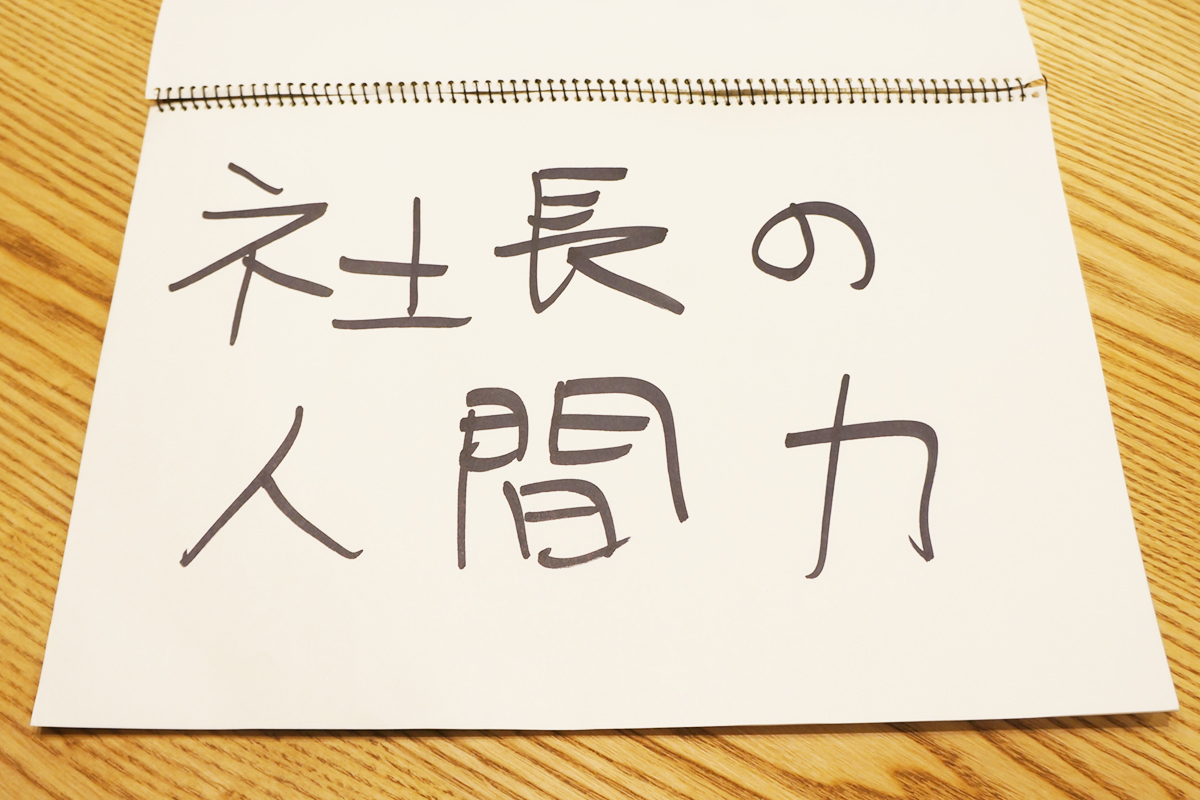 社長の
人間力